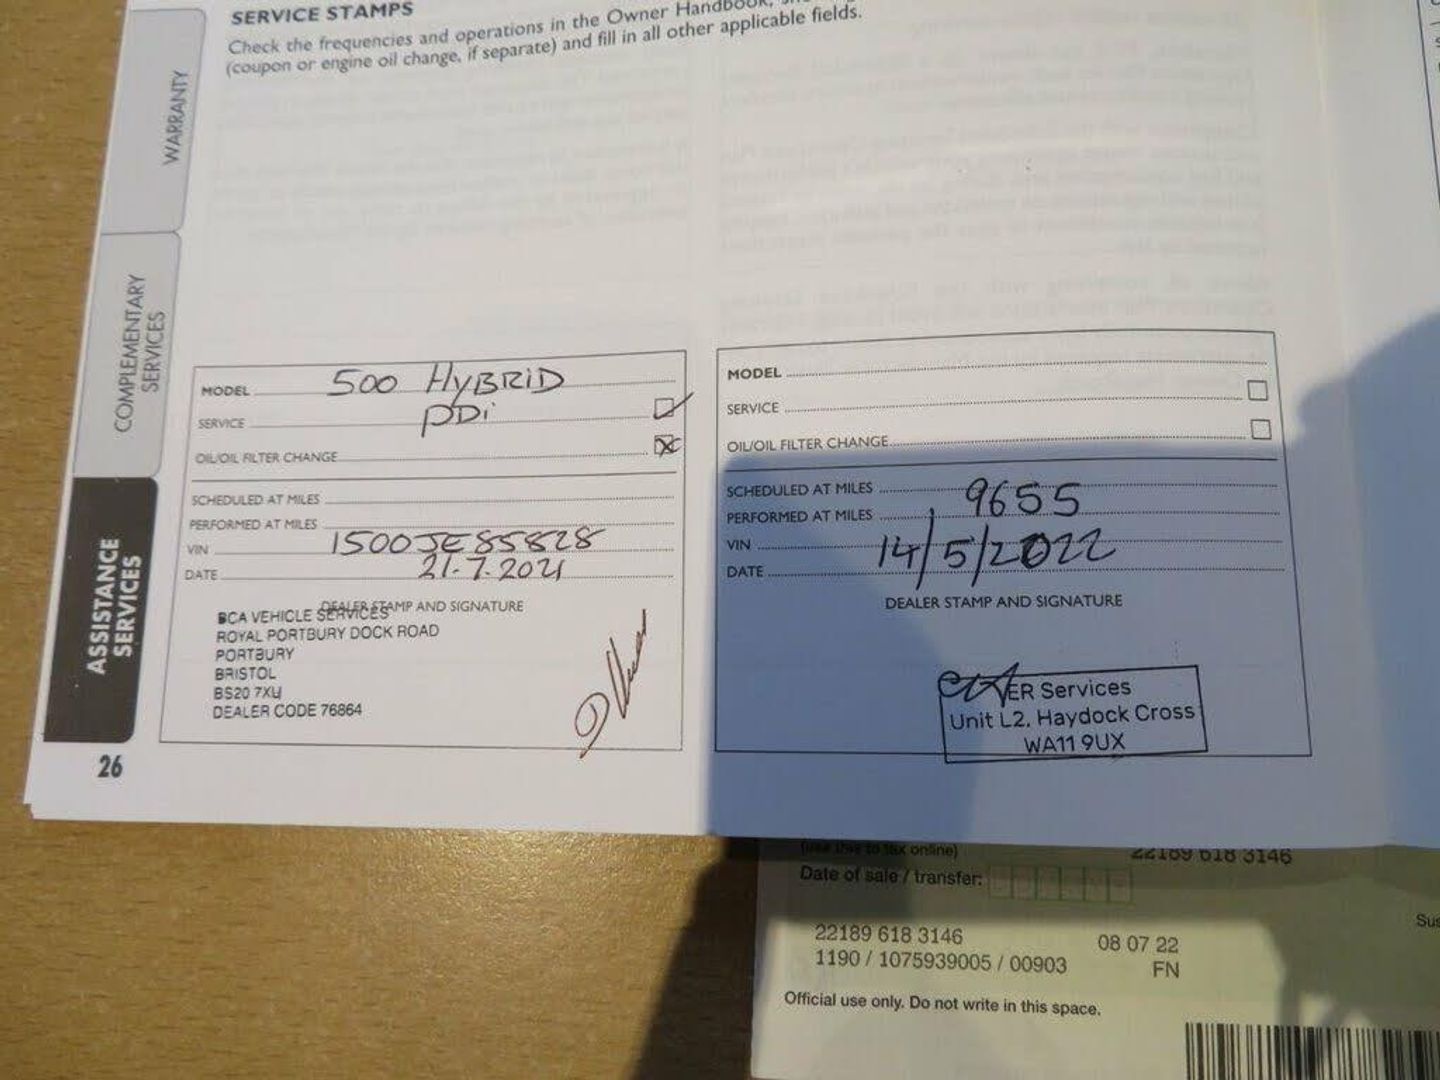 SERVICE STAMPS
Check the frequencies and operations in the Owner Handbook,
(coupon or engine oil change, if separate) and fill in all other applicable fields.
WARRANTY
COMPLEMENTARY
SERVICES
ASSISTANCE
SERVICES
26
MODEL 500 HYBRID
SERVICE PDi
OIL/OIL FILTER CHANGE
SCHEDULED AT MILES
PERFORMED AT MILES
VIN 1500JE85828
DATE 21.7.2021
DEALER STAMP AND SIGNATURE
BCA VEHICLE SERVICES
ROYAL PORTBURY DOCK ROAD
PORTBURY
BRISTOL
BS20 7XU
DEALER CODE 76864
MODEL
SERVICE
OIL/OIL FILTER CHANGE
SCHEDULED AT MILES
PERFORMED AT MILES 9655
VIN
DATE 14/5/2022
DEALER STAMP AND SIGNATURE
ER Services
Unit L2, Haydock Cross
WA11 9UX
(use this to tax online) 22189 618 3146
Date of sale / transfer:
22189 618 3146 08 07 22
1190 / 1075939005 / 00903 FN
Official use only. Do not write in this space.
Sus